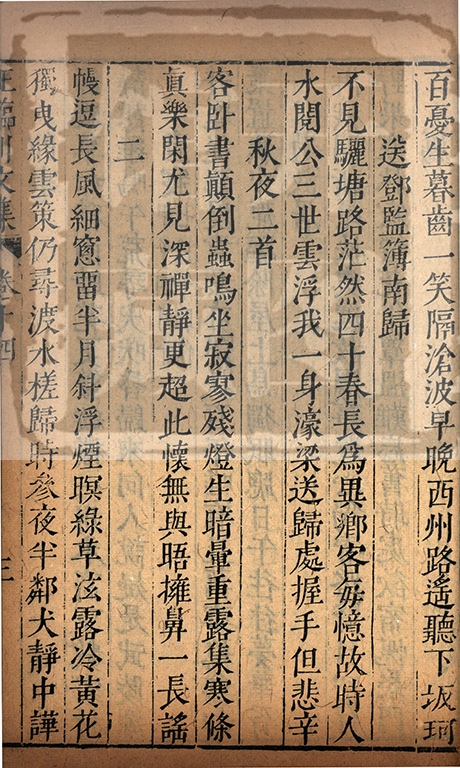 百憂生暮齒一笑隔滄波早晚西州路遥聽下坂珂
送鄧監簿南歸
不見驪塘路茫然四十春長爲異鄉客每憶故時人
水閱公三世雲浮我一身濠梁送歸處握手但悲辛
秋夜二首
客卧書顛倒蟲鳴坐寂寥殘燈生暗暈重露集寒條
真樂閑尤見深禪靜更超此懷無與晤擁鼻一長謠
二
幔逗長風細窻留半月斜浮煙暝綠草泫露冷黃花
獨曳緣雲策仍尋渡水槎歸時參夜半鄰犬靜中譁
王臨川文集 卷十四 三